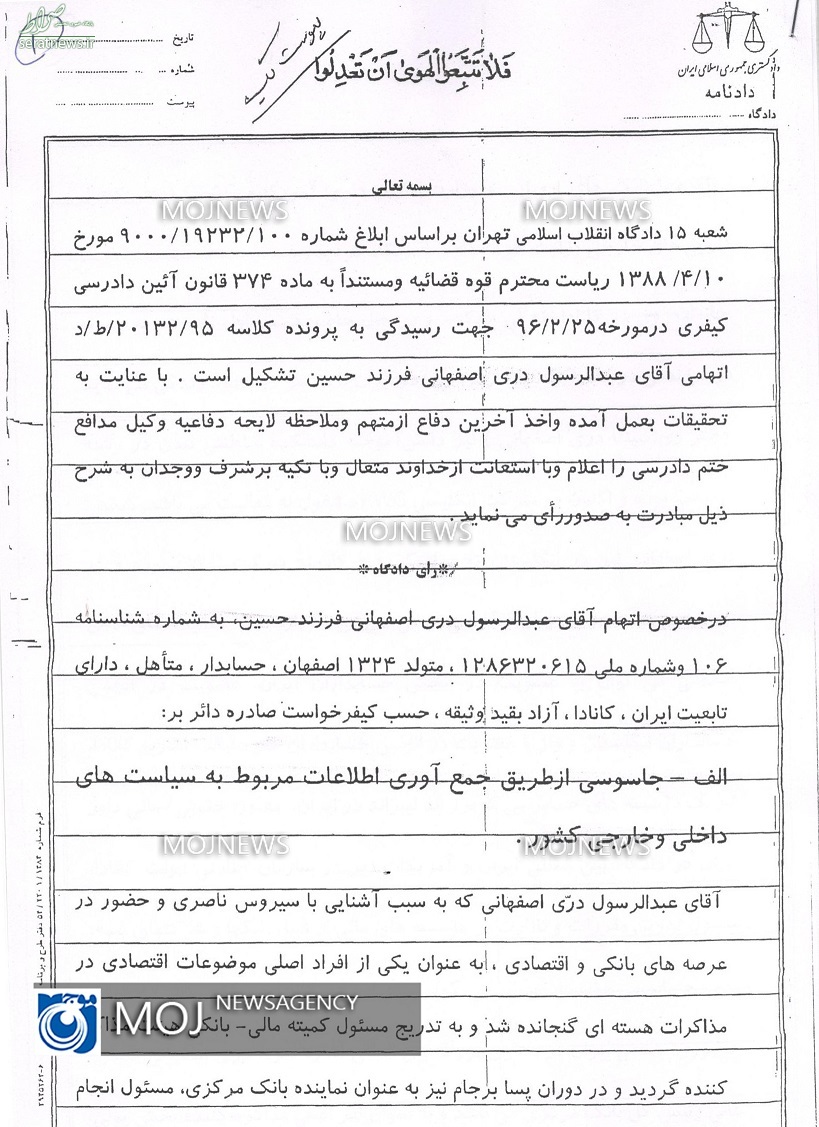 seratnews.ir
دادگستری جمهوری اسلامی ایران
دادنامه
دادگاه
فَلا تَتَّبِعُوا الْهَویٰ اَنْ تَعْدِلُوا
پیوست یک
تاریخ
شماره
پیوست
بسمه تعالی
MOJNEWS MOJNEWS
شعبه ۱۵ دادگاه انقلاب اسلامی تهران براساس ابلاغ شماره ۹۰۰۰/۱۹۲۳۲/۱۰۰ مورخ
۱۳۸۸ /۴/۱۰ ریاست محترم قوه قضائیه ومستنداً به ماده ۳۷۴ قانون آئین دادرسی
کیفری درمورخه۹۶/۲/۲۵ جهت رسیدگی به پرونده کلاسه ۲۰۱۳۲/۹۵/ط/د
اتهامی آقای عبدالرسول دری اصفهانی فرزند حسین تشکیل است . با عنایت به
تحقیقات بعمل آمده واخذ آخرین دفاع ازمتهم وملاحظه لایحه دفاعیه وکیل مدافع
ختم دادرسی را اعلام وبا استعانت ازخداوند متعال وبا تکیه برشرف ووجدان به شرح
ذیل مبادرت به صدوررأی می نماید .
MOJNEWS
*رای دادگاه*
درخصوص اتهام آقای عبدالرسول دری اصفهانی فرزند حسین، به شماره شناسنامه
۱۰۶ وشماره ملی ۱۲۸۶۳۲۰۶۱۵ ، متولد ۱۳۲۴ اصفهان ، حسابدار ، متأهل ، دارای
تابعیت ایران ، کانادا ، آزاد بقید وثیقه ، حسب کیفرخواست صادره دائر بر:
الف – جاسوسی ازطریق جمع آوری اطلاعات مربوط به سیاست های
داخلی وخارجی کشور .
MOJNEWS MOJNEWS
آقای عبدالرسول درّی اصفهانی که به سبب آشنایی با سیروس ناصری و حضور در
عرصه های بانکی و اقتصادی ، به عنوان یکی از افراد اصلی موضوعات اقتصادی در
مذاکرات هسته ای گنجانده شد و به تدریج مسئول کمیته مالی- بانکی
کننده گردید و در دوران پسا برجام نیز به عنوان نماینده بانک مرکزی، مسئول انجام
MOJ NEWSAGENCY